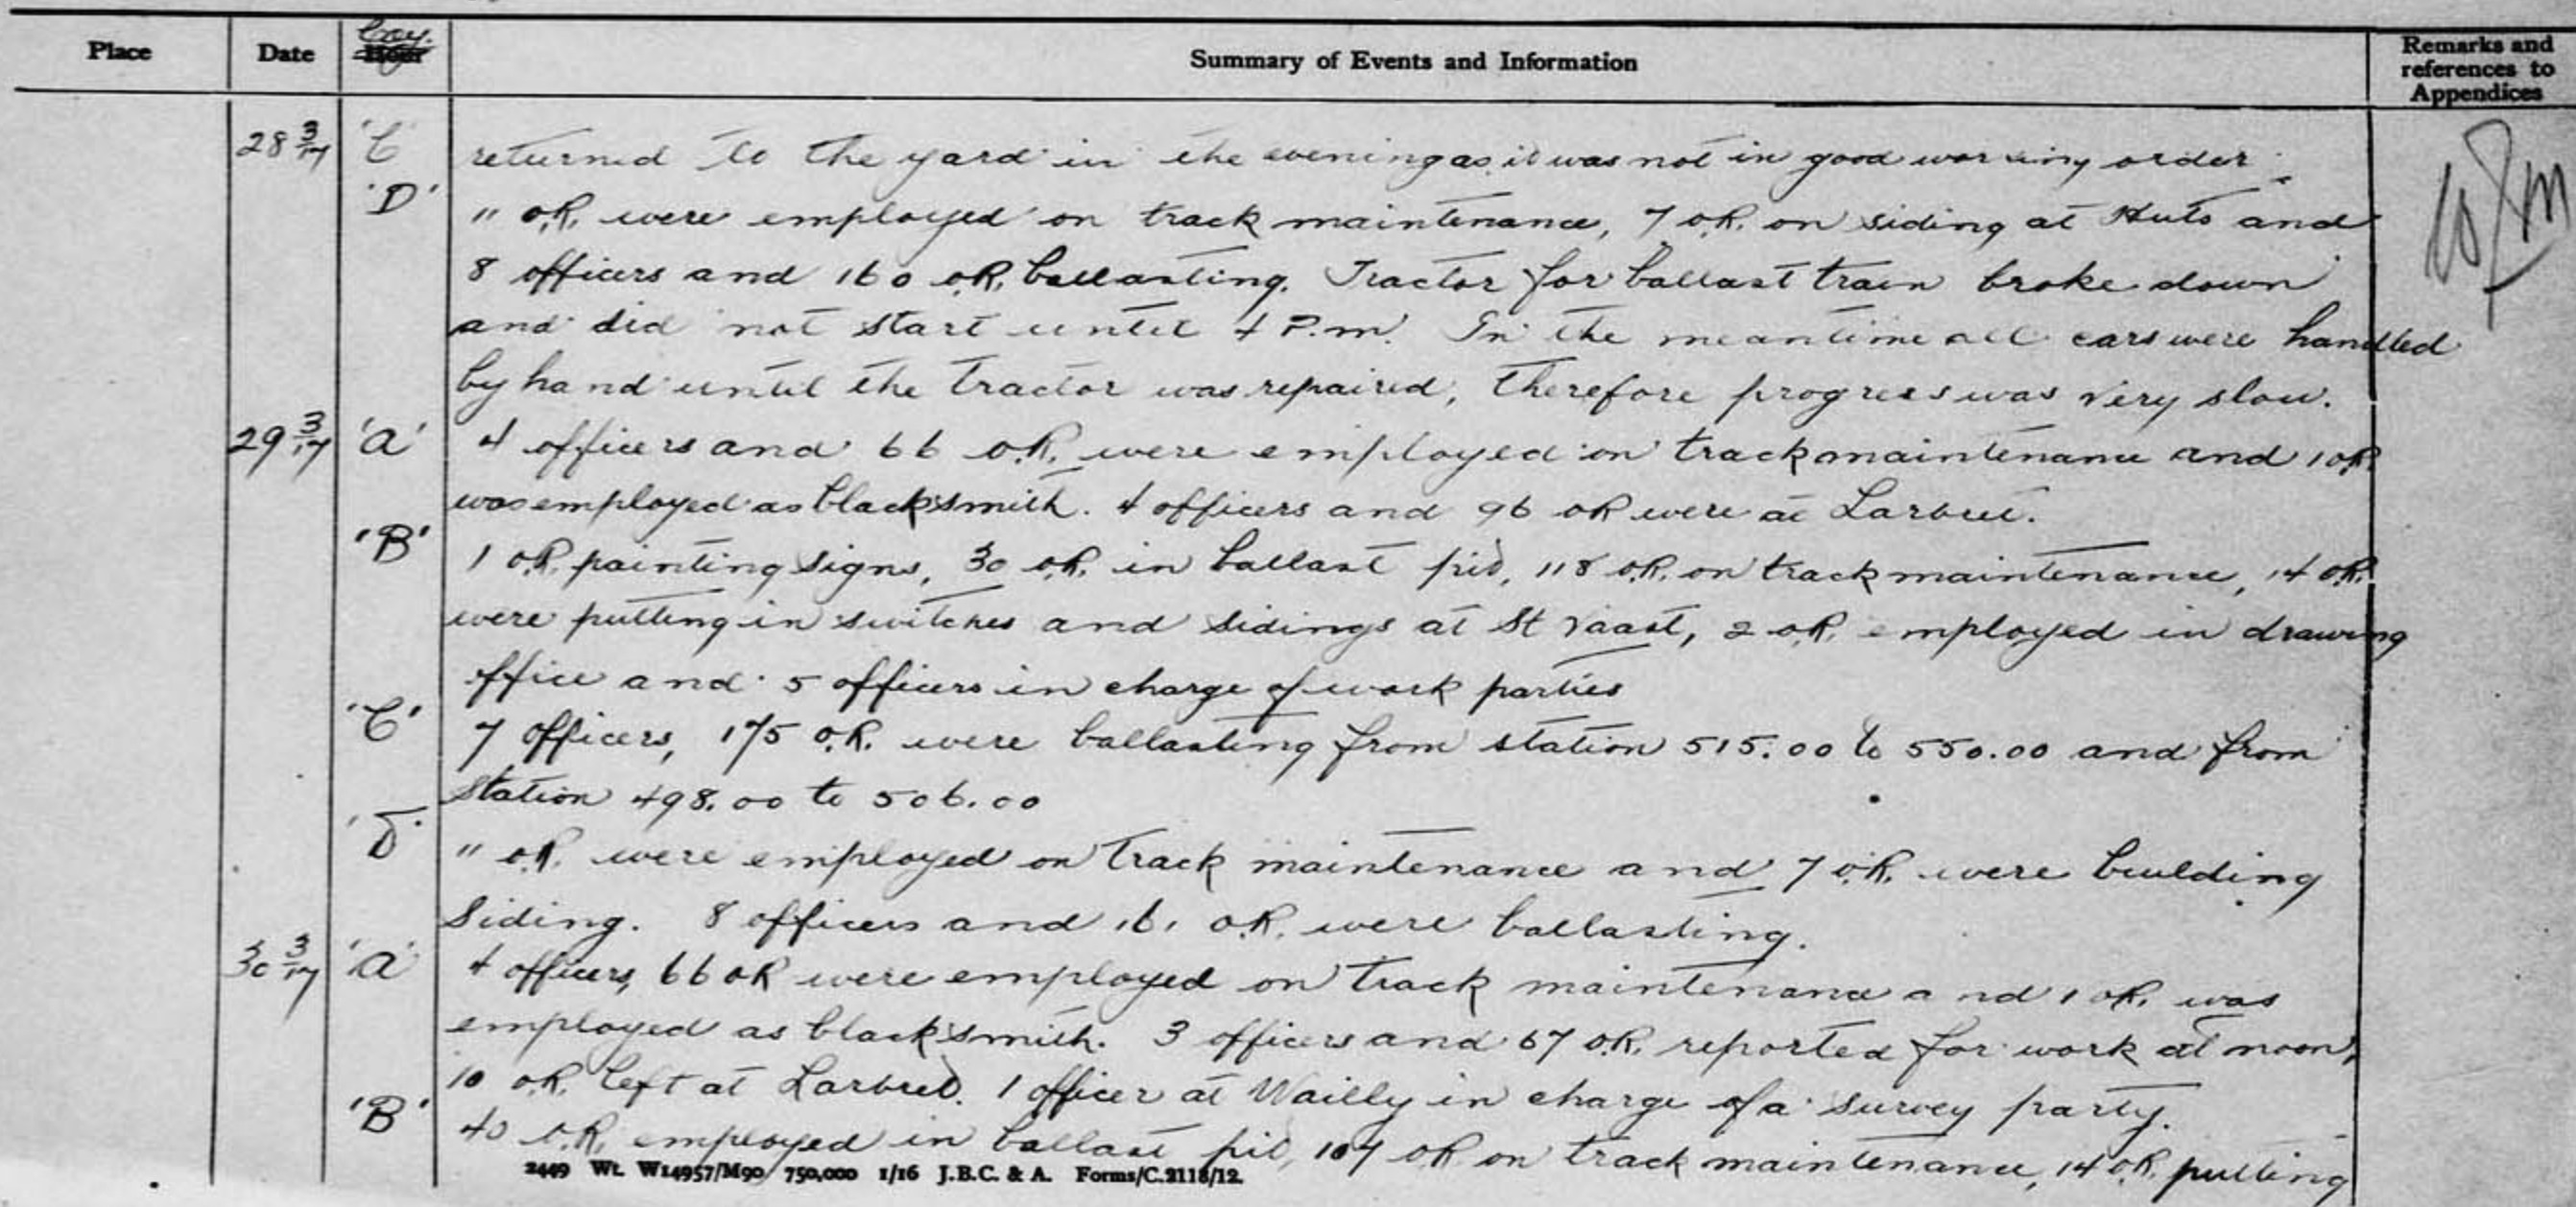 Place Date Coy. Hour Summary of Events and Information Remarks and references to Appendices
28 3/17 'C' returned to the yard in the evening as it was not in good working order.
'D' 11 O.R. were employed on track maintenance, 7 O.R. on siding at Huts and
8 officers and 160 O.R. ballasting. Tractor for ballast train broke down
and did not start until 4 P.m. In the meantime all cars were handled
by hand until the tractor was repaired, therefore progress was very slow.
29 3/17 'A' 4 officers and 66 O.R. were employed on track maintenance and 1 O.R.
was employed as blacksmith. 4 officers and 96 OR were at Larbret.
'B' 1 O.R. painting signs, 30 O.R. in ballast pit, 118 O.R. on track maintenance, 14 O.R.
were putting in switches and sidings at St Vaast, 2 O.R. employed in drawing
office and 5 officers in charge of work parties
'C' 7 officers, 175 O.R. were ballasting from station 515.00 to 550.00 and from
Station 498.00 to 506.00
'D' 11 O.R. were employed on track maintenance and 7 O.R. were building
Siding. 8 officers and 161 O.R. were ballasting.
30 3/17 'A' 4 officers, 66 OR were employed on track maintenance and 1 O.R. was
employed as blacksmith. 3 officers and 67 O.R. reported for work at noon,
10 O.R. left at Larbret. 1 officer at Wailly in charge of a survey party.
'B' 40 O.R. employed in ballast pit, 107 OR on track maintenance, 14 O.R. putting
2449 Wt. W14957/M90 750,000 1/16 J.B.C. & A. Forms/C.2118/12.